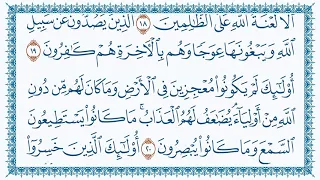 أَلَا لَعْنَةُ اللَّهِ عَلَى الظَّالِمِينَ ١٨ الَّذِينَ يَصُدُّونَ عَن سَبِيلِ
اللَّهِ وَيَبْغُونَهَا عِوَجًا وَهُم بِالْآخِرَةِ هُمْ كَافِرُونَ ١٩
أُولَٰئِكَ لَمْ يَكُونُوا مُعْجِزِينَ فِي الْأَرْضِ وَمَا كَانَ لَهُم مِّن دُونِ
اللَّهِ مِنْ أَوْلِيَاءَ يُضَاعَفُ لَهُمُ الْعَذَابُ مَا كَانُوا يَسْتَطِيعُونَ
السَّمْعَ وَمَا كَانُوا يُبْصِرُونَ ٢٠ أُولَٰئِكَ الَّذِينَ خَسِرُوا